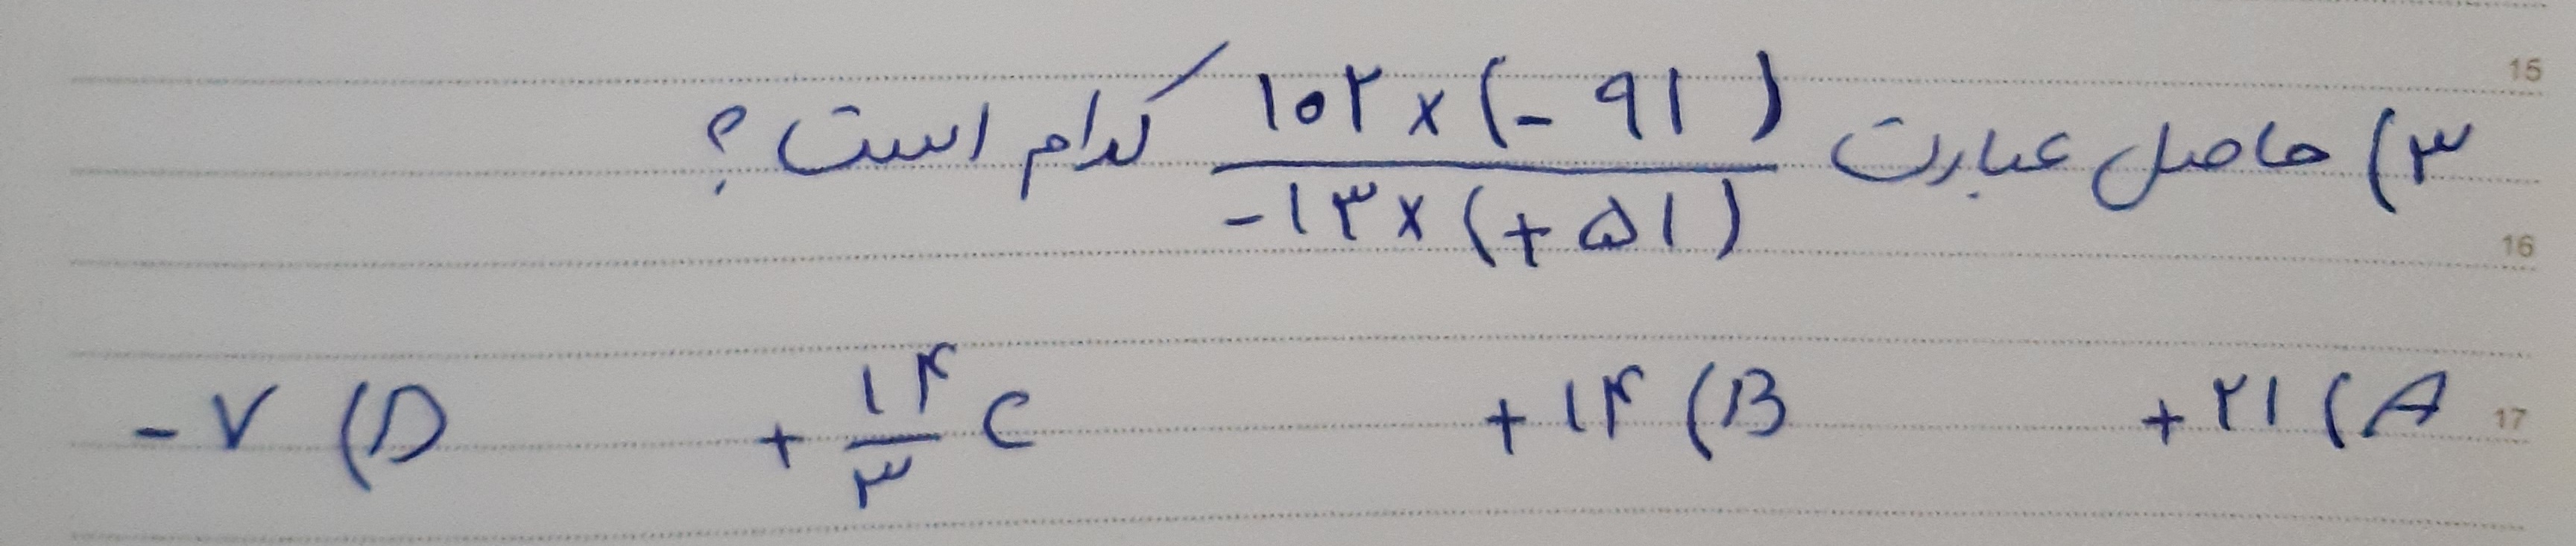 ۳) حاصل عبارت ۱۰۲ × (- ۹۱) / -۱۳ × (+ ۵۱) کدام است؟
A) +۲۱ B) +۱۴ C +۱۴/۳ D) -۷
15
16
17